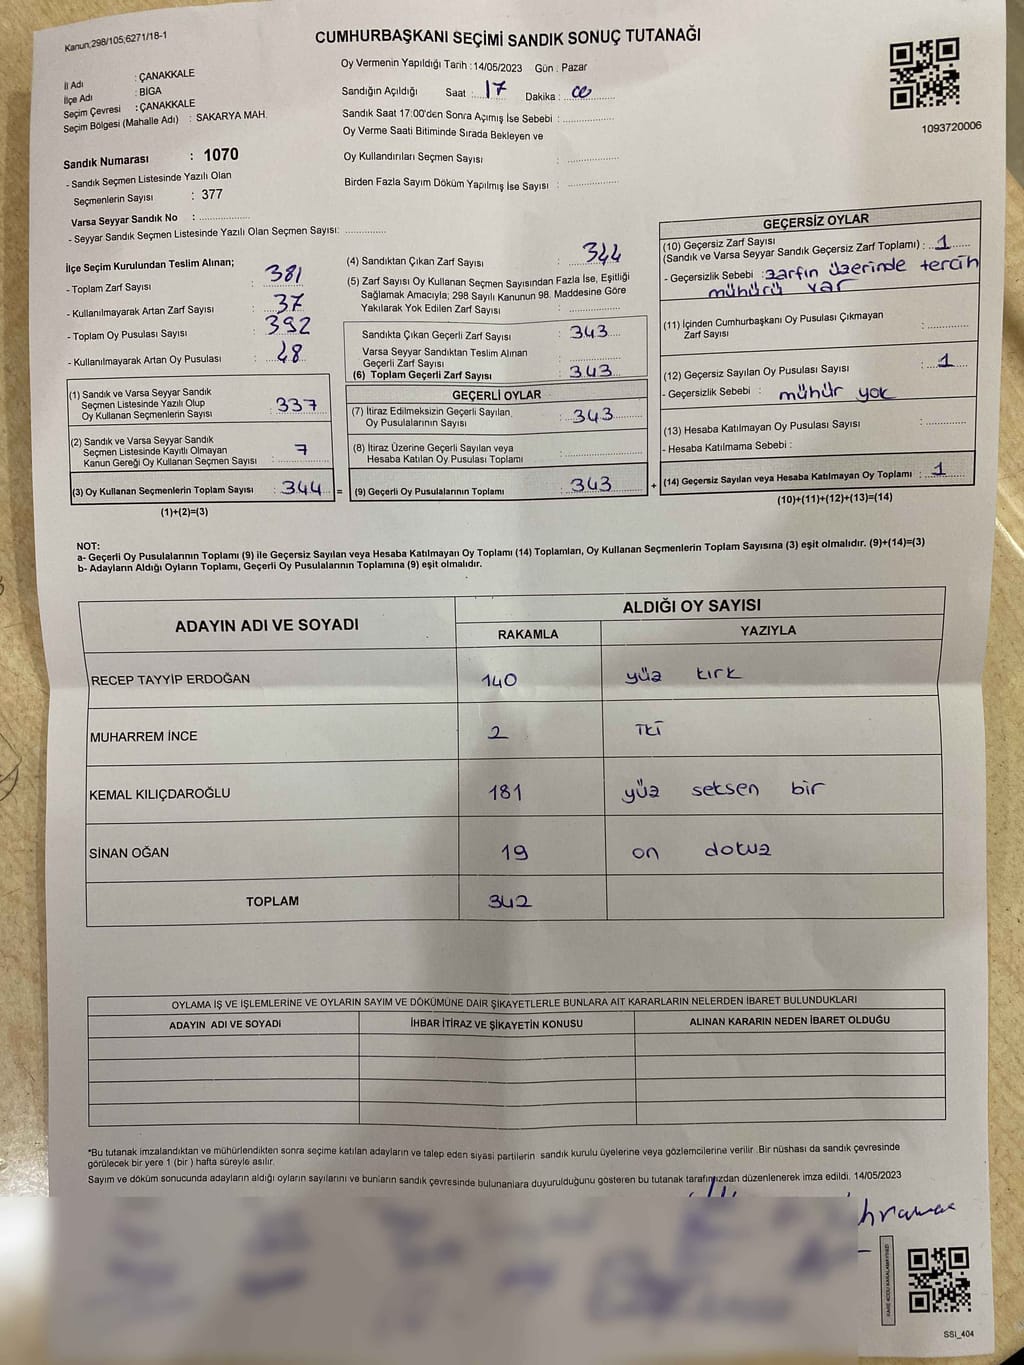 Kanun;298/105;6271/18-1
CUMHURBAŞKANI SEÇİMİ SANDIK SONUÇ TUTANAĞI
İl Adı : ÇANAKKALE
İlçe Adı : BİGA
Seçim Çevresi : ÇANAKKALE
Seçim Bölgesi (Mahalle Adı) : SAKARYA MAH.
Sandık Numarası : 1070
- Sandık Seçmen Listesinde Yazılı Olan
Seçmenlerin Sayısı : 377
Varsa Seyyar Sandık No : ..................
- Seyyar Sandık Seçmen Listesinde Yazılı Olan Seçmen Sayısı: ............
Oy Vermenin Yapıldığı Tarih : 14/05/2023 Gün : Pazar
Sandığın Açıldığı Saat : 17 Dakika : 00
Sandık Saat 17:00'den Sonra Açımış İse Sebebi : ................
Oy Verme Saati Bitiminde Sırada Bekleyen ve
Oy Kullandırıları Seçmen Sayısı : ................
Birden Fazla Sayım Döküm Yapılmış İse Sayısı : ................
1093720006
İlçe Seçim Kurulundan Teslim Alınan;
- Toplam Zarf Sayısı : 381
- Kullanılmayarak Artan Zarf Sayısı : 37
- Toplam Oy Pusulası Sayısı : 392
- Kullanılmayarak Artan Oy Pusulası : 48
(1) Sandık ve Varsa Seyyar Sandık
Seçmen Listesinde Yazılı Olup
Oy Kullanan Seçmenlerin Sayısı : 337
(2) Sandık ve Varsa Seyyar Sandık
Seçmen Listesinde Kayıtlı Olmayan
Kanun Gereği Oy Kullanan Seçmen Sayısı : 7
(3) Oy Kullanan Seçmenlerin Toplam Sayısı : 344 =
(1)+(2)=(3)
(4) Sandıktan Çıkan Zarf Sayısı : 344
(5) Zarf Sayısı Oy Kullanan Seçmen Sayısından Fazla İse, Eşitliği
Sağlamak Amacıyla; 298 Sayılı Kanunun 98. Maddesine Göre
Yakılarak Yok Edilen Zarf Sayısı : ................
Sandıkta Çıkan Geçerli Zarf Sayısı : 343
Varsa Seyyar Sandıktan Teslim Alınan
Geçerli Zarf Sayısı : ................
(6) Toplam Geçerli Zarf Sayısı : 343
GEÇERLİ OYLAR
(7) İtiraz Edilmeksizin Geçerli Sayılan,
Oy Pusulalarının Sayısı : 343
(8) İtiraz Üzerine Geçerli Sayılan veya
Hesaba Katılan Oy Pusulası Toplamı : ................
(9) Geçerli Oy Pusulalarının Toplamı : 343 +
GEÇERSİZ OYLAR
(10) Geçersiz Zarf Sayısı
(Sandık ve Varsa Seyyar Sandık Geçersiz Zarf Toplamı) : 1
- Geçersizlik Sebebi : zarfın üzerinde tercih
mühürü var
(11) İçinden Cumhurbaşkanı Oy Pusulası Çıkmayan
Zarf Sayısı : ............
(12) Geçersiz Sayılan Oy Pusulası Sayısı : 1
- Geçersizlik Sebebi : mühür yok
(13) Hesaba Katılmayan Oy Pusulası Sayısı : ............
- Hesaba Katılmama Sebebi :
(14) Geçersiz Sayılan veya Hesaba Katılmayan Oy Toplamı : 1
(10)+(11)+(12)+(13)=(14)
NOT:
a- Geçerli Oy Pusulalarının Toplamı (9) ile Geçersiz Sayılan veya Hesaba Katılmayan Oy Toplamı (14) Toplamları, Oy Kullanan Seçmenlerin Toplam Sayısına (3) eşit olmalıdır. (9)+(14)=(3)
b- Adayların Aldığı Oyların Toplamı, Geçerli Oy Pusulalarının Toplamına (9) eşit olmalıdır.
ADAYIN ADI VE SOYADI ALDIĞI OY SAYISI
RAKAMLA YAZIYLA
RECEP TAYYİP ERDOĞAN 140 yüz kırk
MUHARREM İNCE 2 İKİ
KEMAL KILIÇDAROĞLU 181 yüz seksen bir
SİNAN OĞAN 19 on dokuz
TOPLAM 342
OYLAMA İŞ VE İŞLEMLERİNE VE OYLARIN SAYIM VE DÖKÜMÜNE DAİR ŞİKAYETLERLE BUNLARA AİT KARARLARIN NELERDEN İBARET BULUNDUKLARI
ADAYIN ADI VE SOYADI İHBAR İTİRAZ VE ŞİKAYETİN KONUSU ALINAN KARARIN NEDEN İBARET OLDUĞU
*Bu tutanak imzalandıktan ve mühürlendikten sonra seçime katılan adayların ve talep eden siyasi partilerin sandık kurulu üyelerine veya gözlemcilerine verilir. Bir nüshası da sandık çevresinde
görülecek bir yere 1 (bir ) hafta süreyle asılır.
Sayım ve döküm sonucunda adayların aldığı oyların sayılarını ve bunların sandık çevresinde bulunanlara duyurulduğunu gösteren bu tutanak tarafımızdan düzenlenerek imza edildi. 14/05/2023
SSI_404